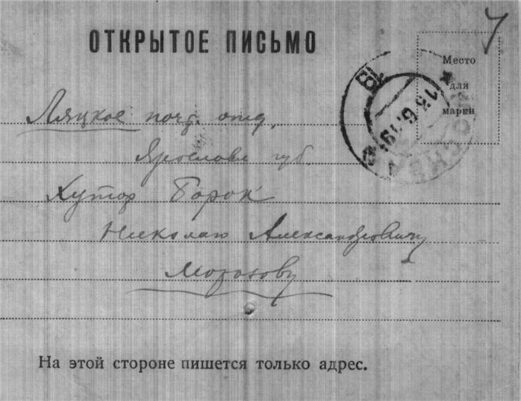 ОТКРЫТОЕ ПИСЬМО
Место
для
марки
МОСКВА
Ляцкое почт. отд.
Ярославс. губ.
Хутор Борок
Николаю Александровичу
Морозову
На этой стороне пишется только адрес.